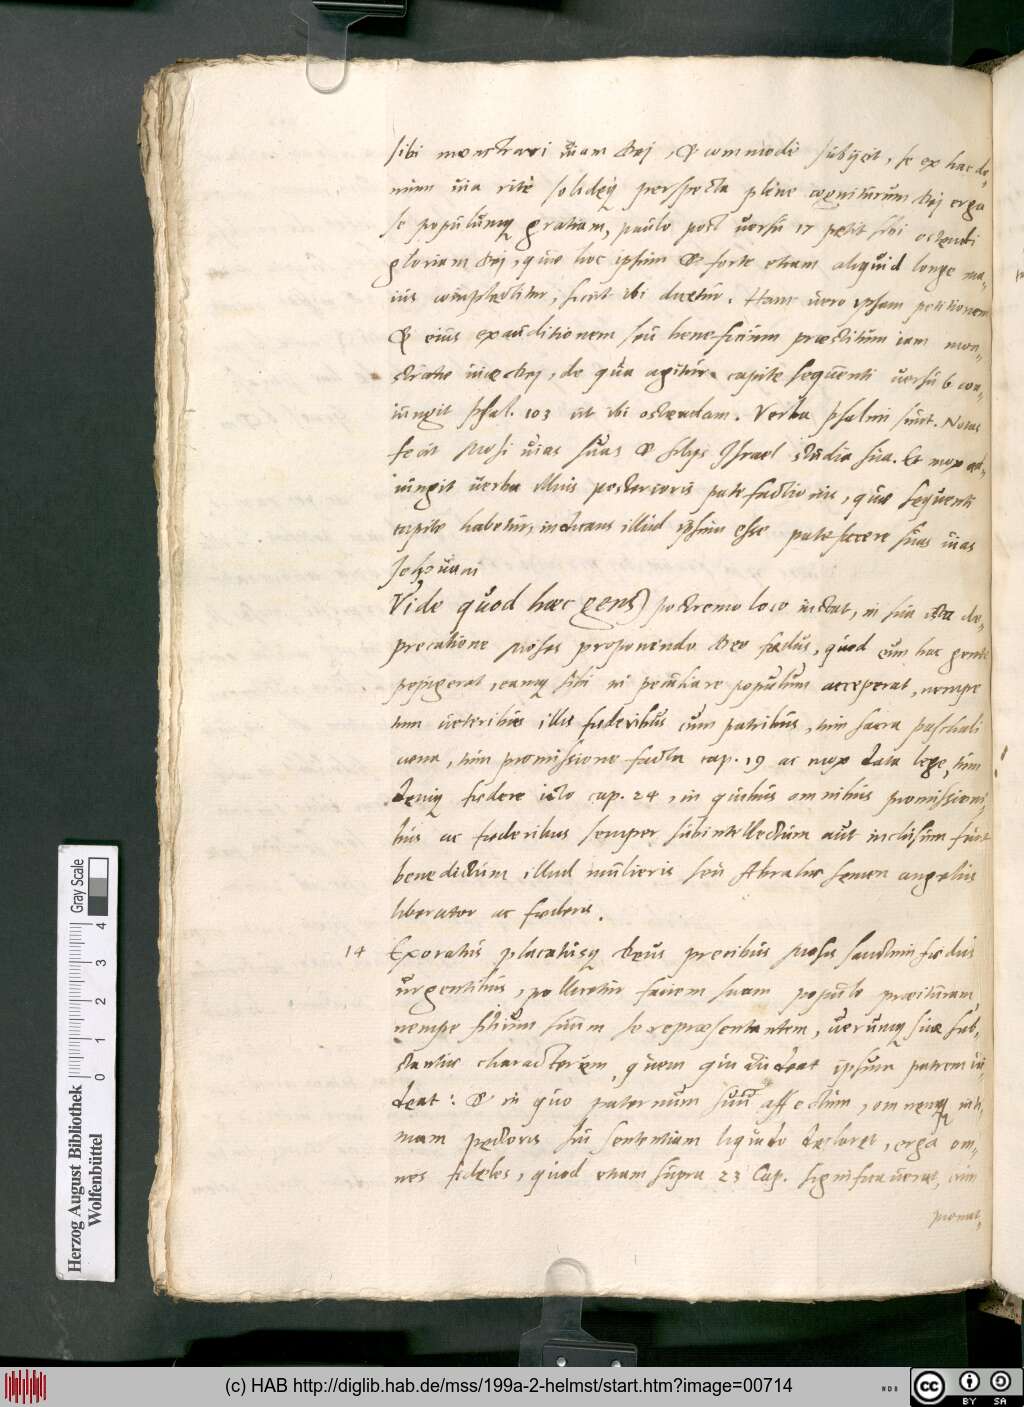 sibi monstrari viam Dej, & commode subijcit, se ex hac de-
mum via rite solideq perspecta plene cogniturum Dej erga
se populumq gratiam, paulo post versu 17 petit sibi ostendi
gloriam Dej, quae hoc ipsum & forte etiam aliquid longe ma-
ius complectitur, sicut ibi dicetur. Hanc vero ipsam petitionem
& eius exauditionem seu beneficium praestitum iam mon-
stratae viae Dej, de qua agitur capite sequenti versu 6 con-
iungit psal. 103 ut ibi ostendam. Verba psalmi sunt. Notas
fecit Mosi vias suas & filijs Israel studia sua. Et mox ad-
iungit verba illius posterioris patefactionis, quae sequenti
capite habetur, indicans illud ipsum esse patefacere suas vias
Jehovam
Vide quod haec gens) postremo loco instat, in sua ista de-
precatione Moses proponendo Deo foedus, quod cum hac gente
pepigerat, eamq sibi in peculiare populum acceperat, nempe
tum veteribus illis foederibus cum patribus, tum sacra paschali
coena, tum promissione facta cap. 19 ac mox data lege, tum
deniq foedere icto cap. 24, in quibus omnibus promissioni-
bus ac foederibus semper subintellectum aut inclusum fuit
benedictum illud mulieris seu Abrahae semen angelus
liberator ac foederis.
14 Exoratus placatusq Deus precibus Mosis sanctum foedus
urgentibus, pollicetur faciem suam populo praeituram
nempe filium suum se repraesentantem, verumq suae sub-
stantiae characterem, quem qui videat ipsum patrem vi-
deat: & in quo paternum suum affectum, omnemq inti-
mam pectoris sui sententiam liquido declaret, erga om-
nes fideles, quod etiam supra 23 Cap. significaverat, cum
monet,
Herzog August Bibliothek
Wolfenbüttel
Gray Scale
0 1 2 3 4
(c) HAB http://diglib.hab.de/mss/199a-2-helmst/start.htm?image=00714
cc BY SA